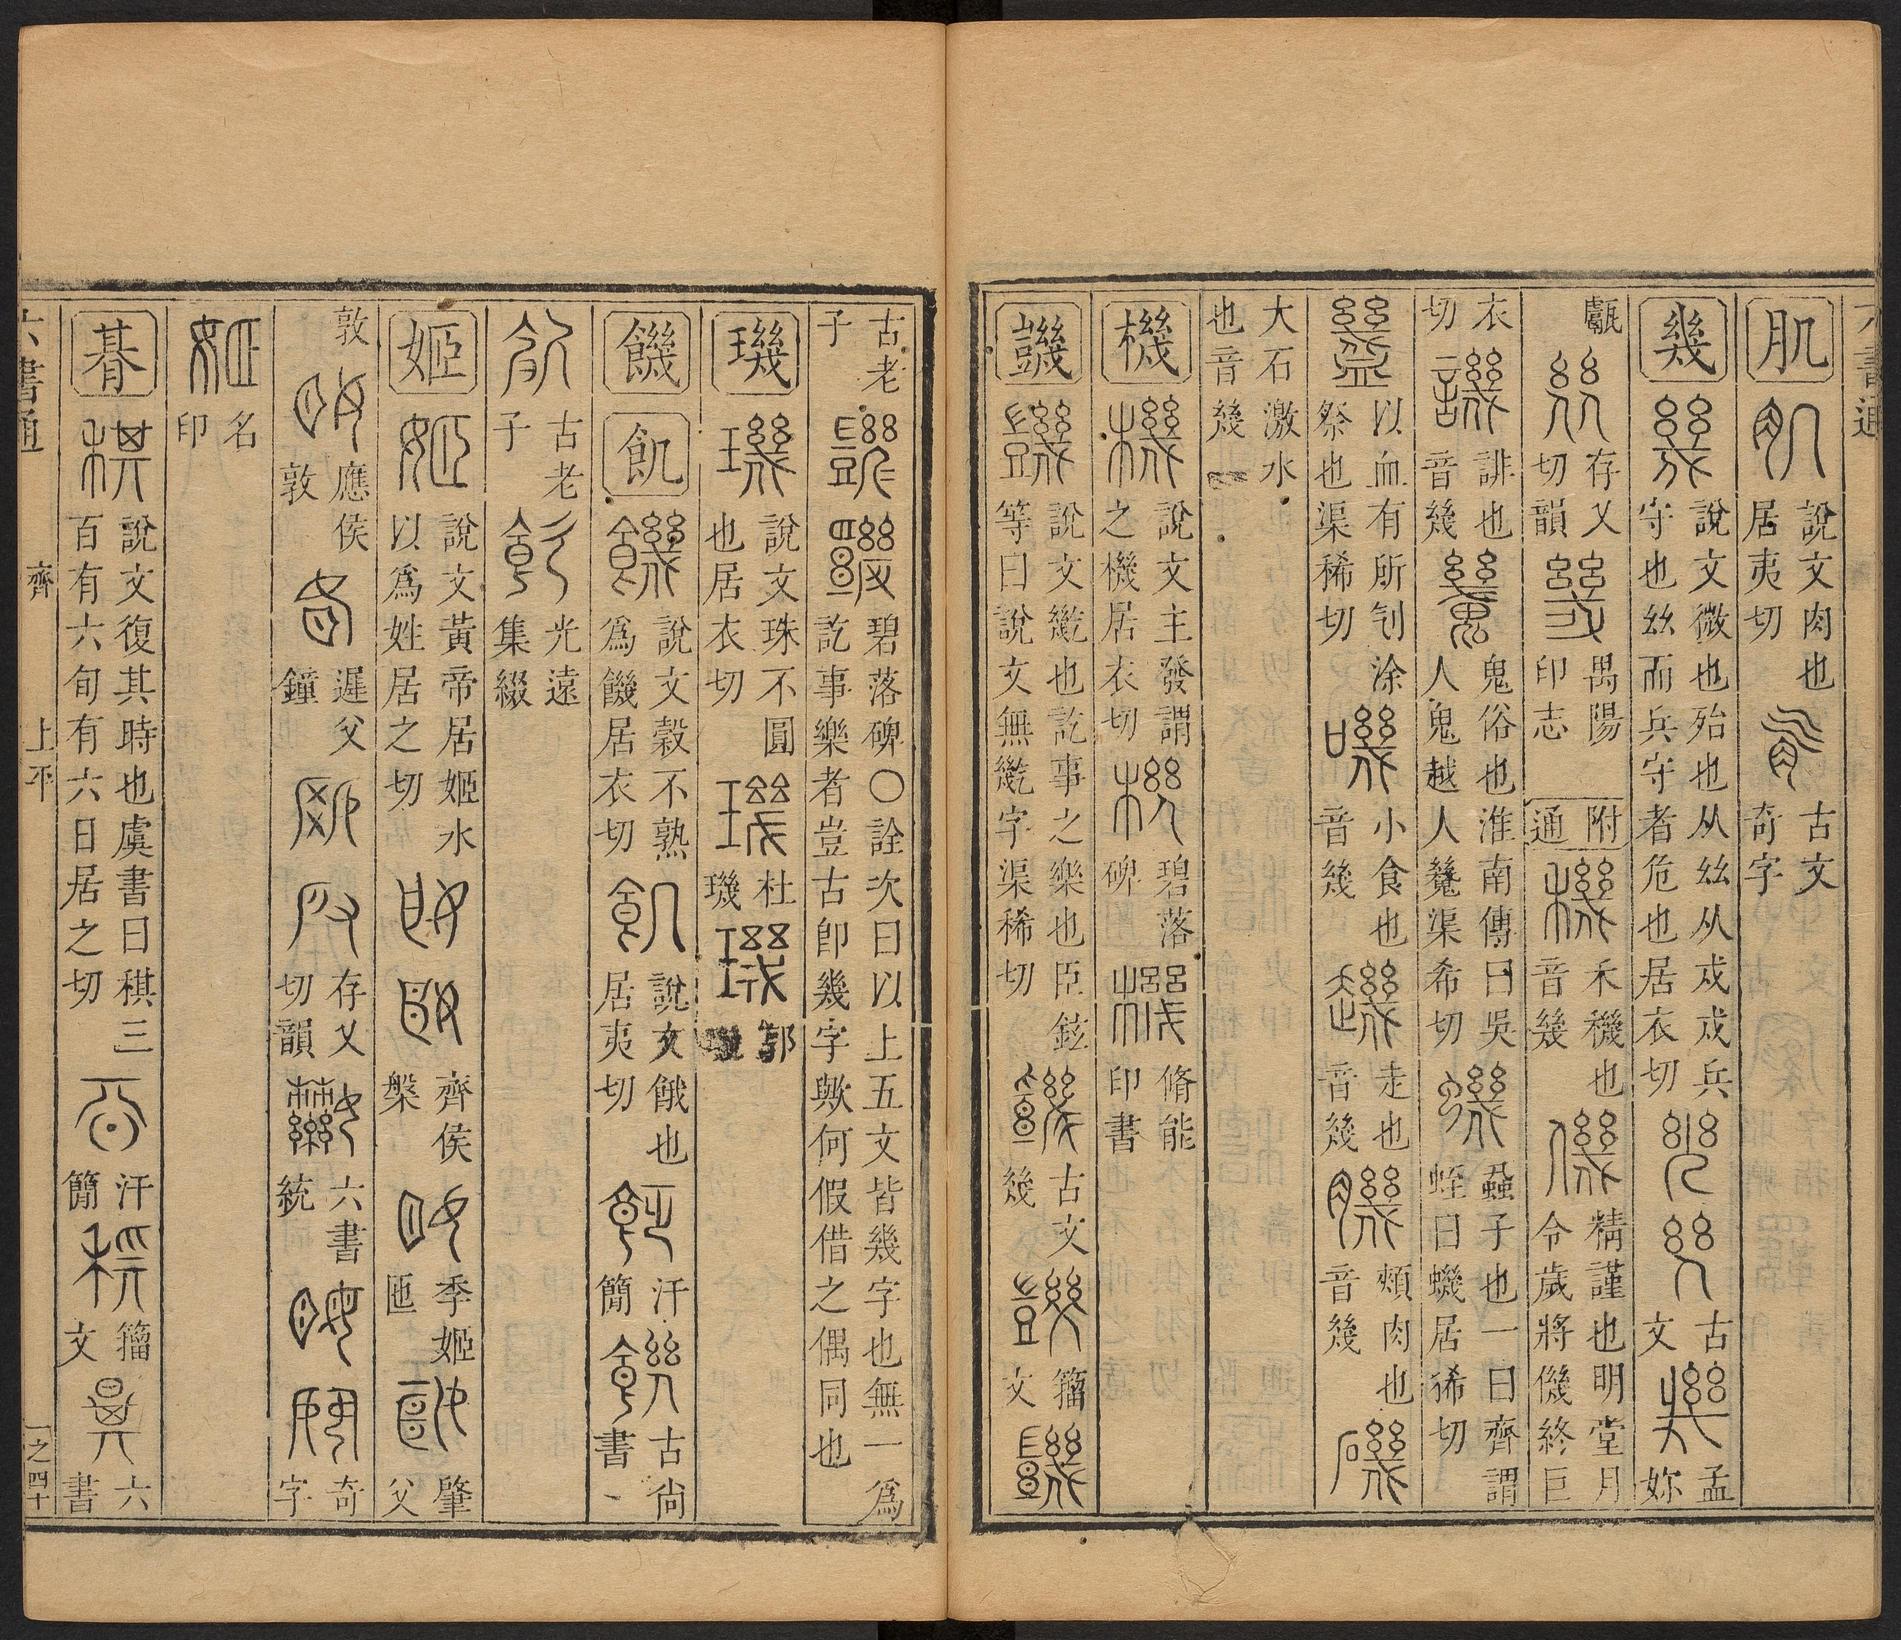 六書通
肌 說文肉也居夷切 古文奇字
幾 說文微也殆也从𢆶从戍戍兵守也𢆶而兵守者危也居衣切 古文 孟妳
甗 存乂切韻 禺陽印志 附通 禾機也音幾 精謹也明堂月令歲將僟終巨
衣切 誹也音幾 鬼俗也淮南傳曰吳人鬼越人䰇渠希切 蝨子也一曰齊謂蛭曰蟣居狶切
以血有所刉涂祭也渠稀切 小食也音幾 走也音幾 頰肉也音幾
大石激水也音幾
機 說文主發謂之機居衣切 碧落碑 脩能印書
譏 說文䡾也訖事之樂也臣鉉等曰說文無䡾字渠稀切 古文幾 籀文
古老子 碧落碑〇詮次曰以上五文皆幾字也無一爲訖事樂者豈古卽幾字歟何假借之偶同也
璣 說文珠不圓也居衣切 杜璣 郭
饑 飢 說文穀不熟爲饑居衣切 說文餓也居夷切 汗簡 古尙書
古老子 光遠集綴
姬 說文黃帝居姬水以爲姓居之切 齊侯槃 季姬匜 肇父
敦 應侯敦 遲父鐘 存乂切韻 六書統 奇字
名印
朞 說文復其時也虞書曰稘三百有六旬有六日居之切 汗簡 籀文 六書
六書通 齊 上平 一之四十